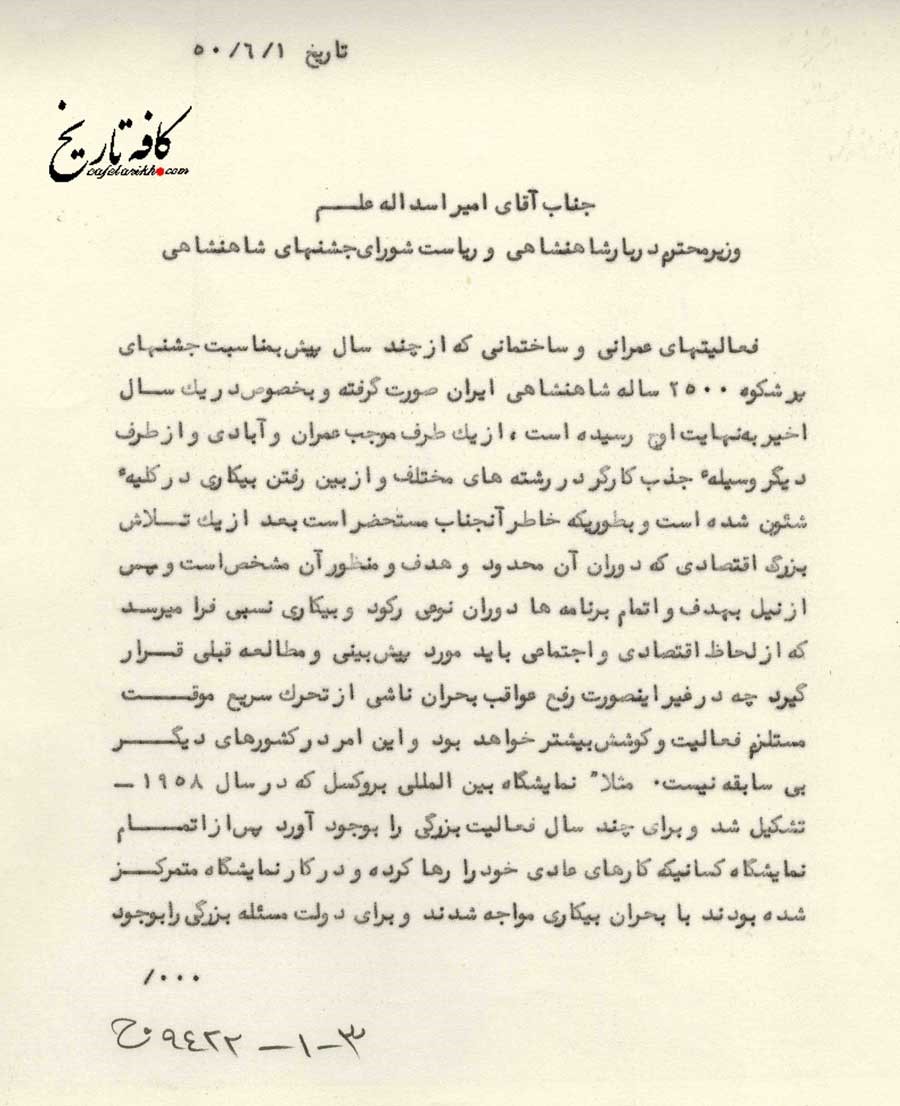 تاریخ ۵۰/۶/۱
کافه تاریخ
cafetarikh.com
جناب آقای امیر اسداله علم
وزیر محترم دربار شاهنشاهی و ریاست شورای جشنهای شاهنشاهی
فعالیتهای عمرانی و ساختمانی که از چند سال پیش بمناسبت جشنهای
پر شکوه ۲۵۰۰ ساله شاهنشاهی ایران صورت گرفته و بخصوص در یك سال
اخیر به نهایت اوج رسیده است ، از یك طرف موجب عمران و آبادی و از طرف
دیگر وسیلهٔ جذب کارگر در رشته های مختلف و از بین رفتن بیکاری در کلیهٔ
شئون شده است و بطوریکه خاطر آنجناب مستحضر است بعد از یك تلاش
بزرگ اقتصادی که دوران آن محدود و هدف و منظور آن مشخص است و پس
از نیل بهدف و اتمام برنامه ها دوران نوعی رکود و بیکاری نسبی فرا میرسد
که از لحاظ اقتصادی و اجتماعی باید مورد پیش بینی و مطالعه قبلی قرار
گیرد چه در غیر اینصورت رفع عواقب بحران ناشی از تحرك سریع موقت
مستلزم فعالیت و کوشش بیشتر خواهد بود و این امر در کشورهای دیگر
بی سابقه نیست . مثلا" نمایشگاه بین المللی بروکسل که در سال ۱۹۵۸ -
تشکیل شد و برای چند سال فعالیت بزرگی را بوجود آورد پس از اتمام
نمایشگاه کسانیکه کارهای عادی خود را رها کرده و در کار نمایشگاه متمرکز
شده بودند با بحران بیکاری مواجه شدند و برای دولت مسئله بزرگی را بوجود
/۰۰۰
۳-۱-۹۴۲۲ ح